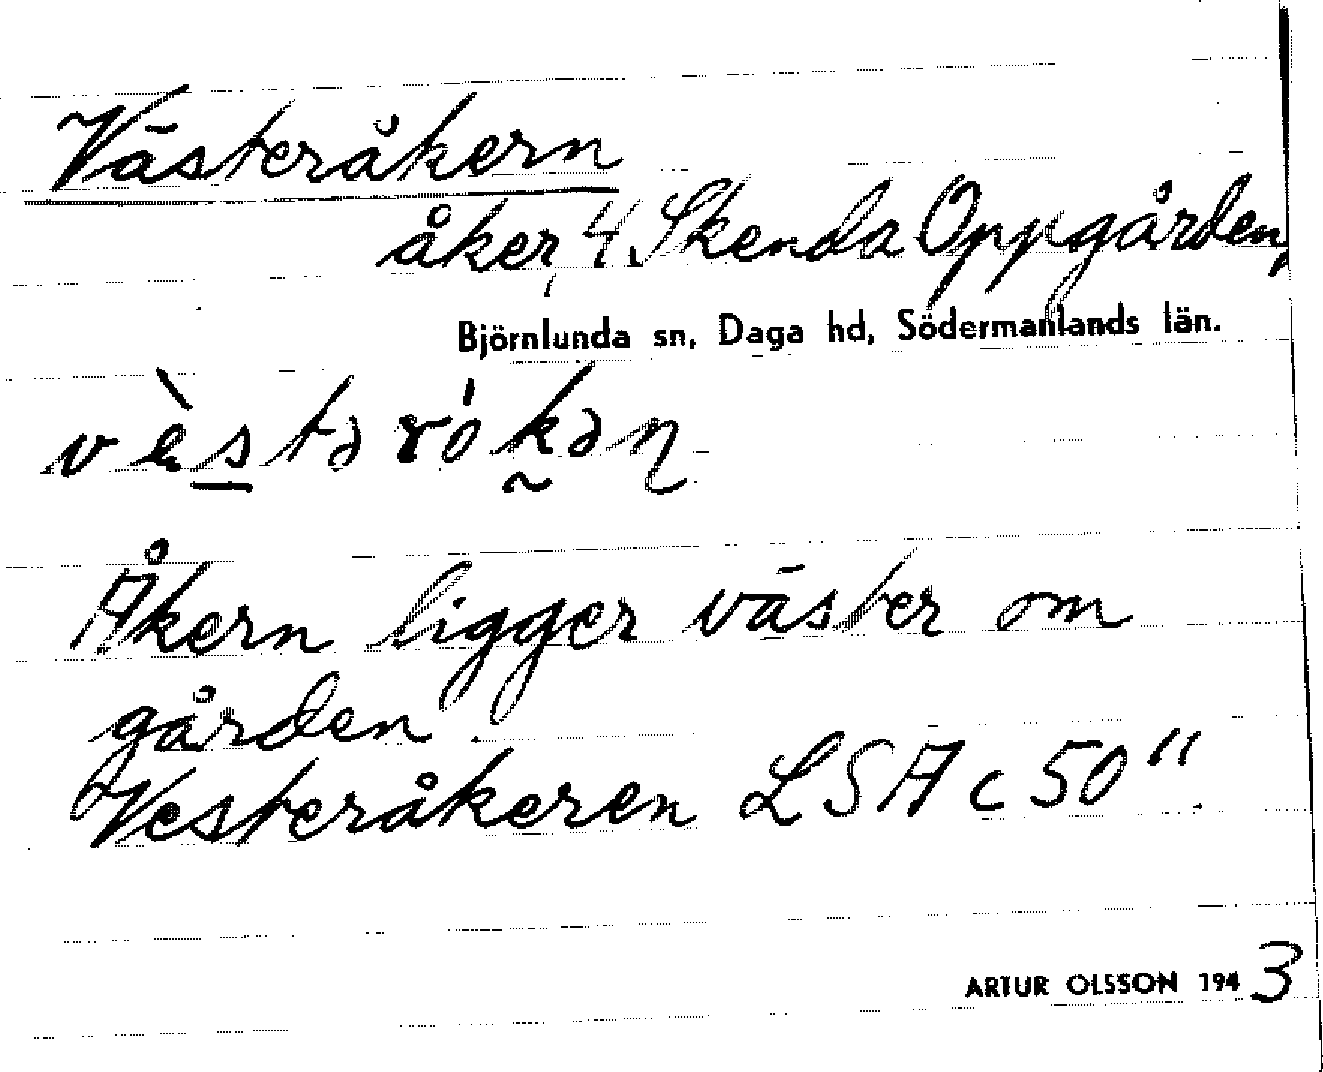 Västeråkern
åker, 4. Skenda Oppgården,
Björnlunda sn, Daga hd, Södermanlands län.
vè̀stərókəη
Åkern ligger väster om
gården.
Vesteråkeren LSA c 50"
ARTUR OLSSON 1943